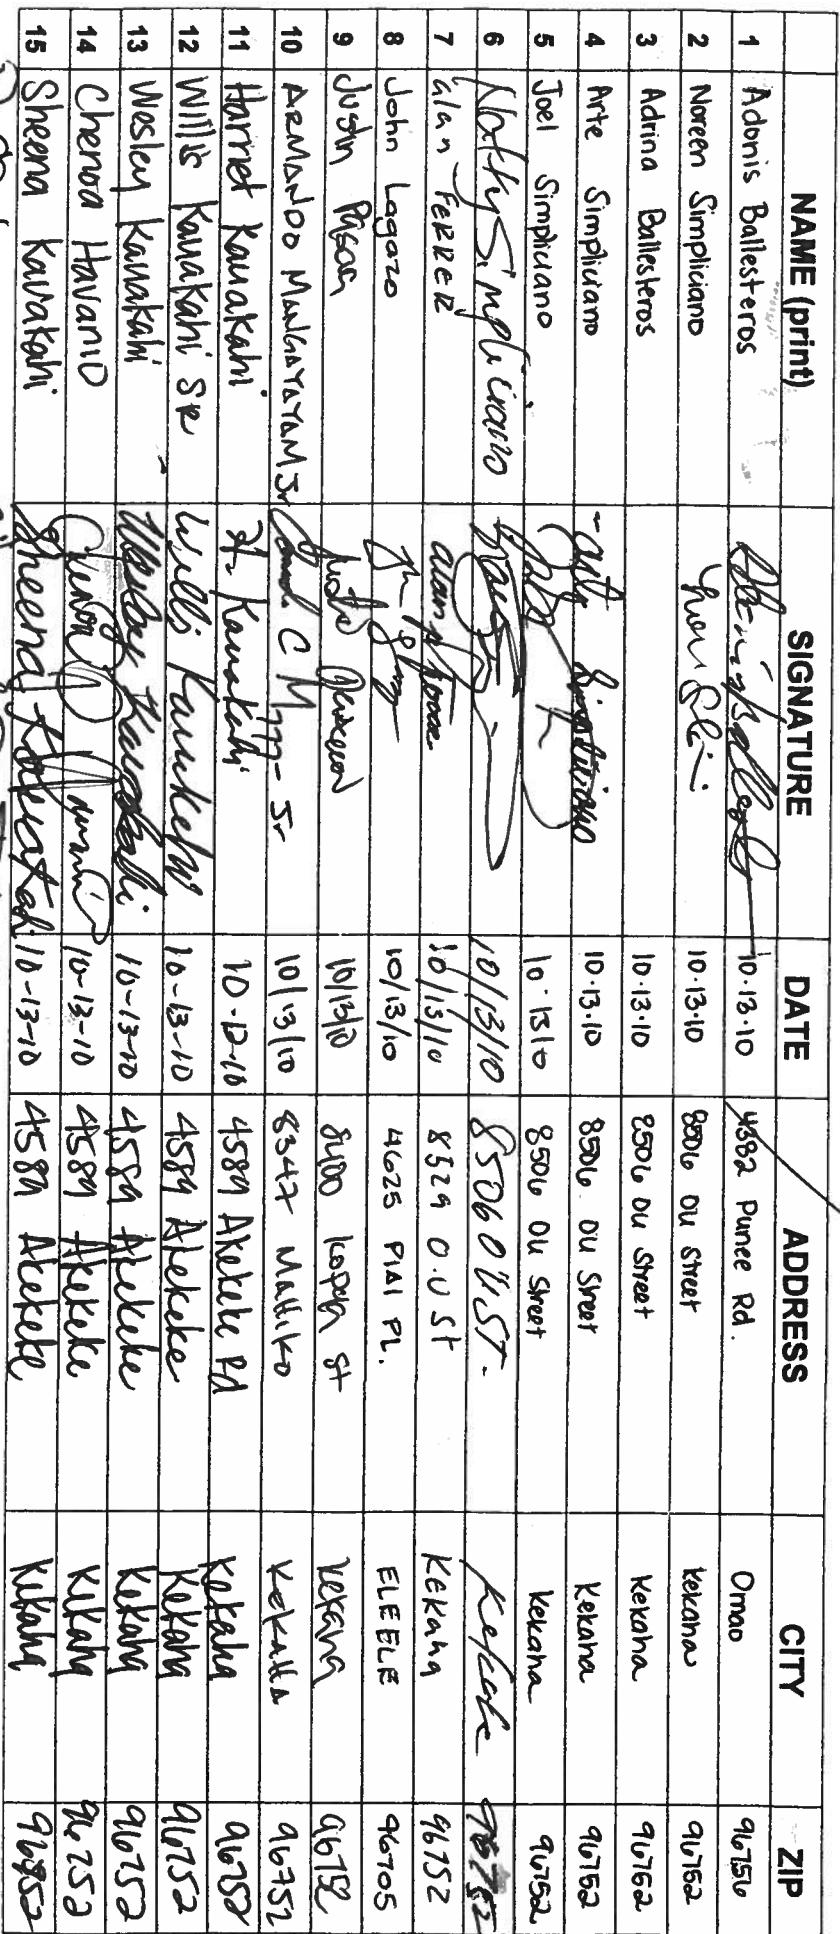 NAME (print) SIGNATURE DATE ADDRESS CITY ZIP
1 Adonis Ballesteros 10.13.10 4382 Punee Rd. Omao 96756
2 Noreen Simpliciano 10.13.10 8506 OU Street Kekaha 96752
3 Adrina Ballesteros 10.13.10 8506 OU Street Kekaha 96752
4 Arte Simpliciano Simpliciano 10.13.10 8506 OU Street Kekaha 96752
5 Joel Simpliciano 10.13.10 8506 OU Street Kekaha 96752
6 Simpliciano 10/13/10 8506 OU ST. Kekaha 96752
7 alan FERRER alan 10/13/10 8529 O.U St KEKaha 96752
8 John Lagazo 10/13/10 4625 PIAI PL. ELEELE 96705
9 Justin Justin 10/13/10 8400 St Kekaha 96752
10 ARMANDO Jr C M Jr 10/13/10 8347 KekaHa 96752
11 Harriet Kauakahi H. Kauakahi 10-13-10 4589 Akekeke Rd Kekaha 96752
12 Willis Kauakahi SR Willis Kauakahi 10-13-10 4589 Akekeke Kekaha 96752
13 Wesley Kauakahi Wesley Kauakahi 10-13-10 4589 Akekeke Kekaha 96752
14 Chenoa Havanio Chenoa 10-13-10 4589 Akekeke Kekaha 96752
15 Sheena Kauakahi Sheena Kauakahi 10-13-10 4589 Akekeke Kekaha 96752